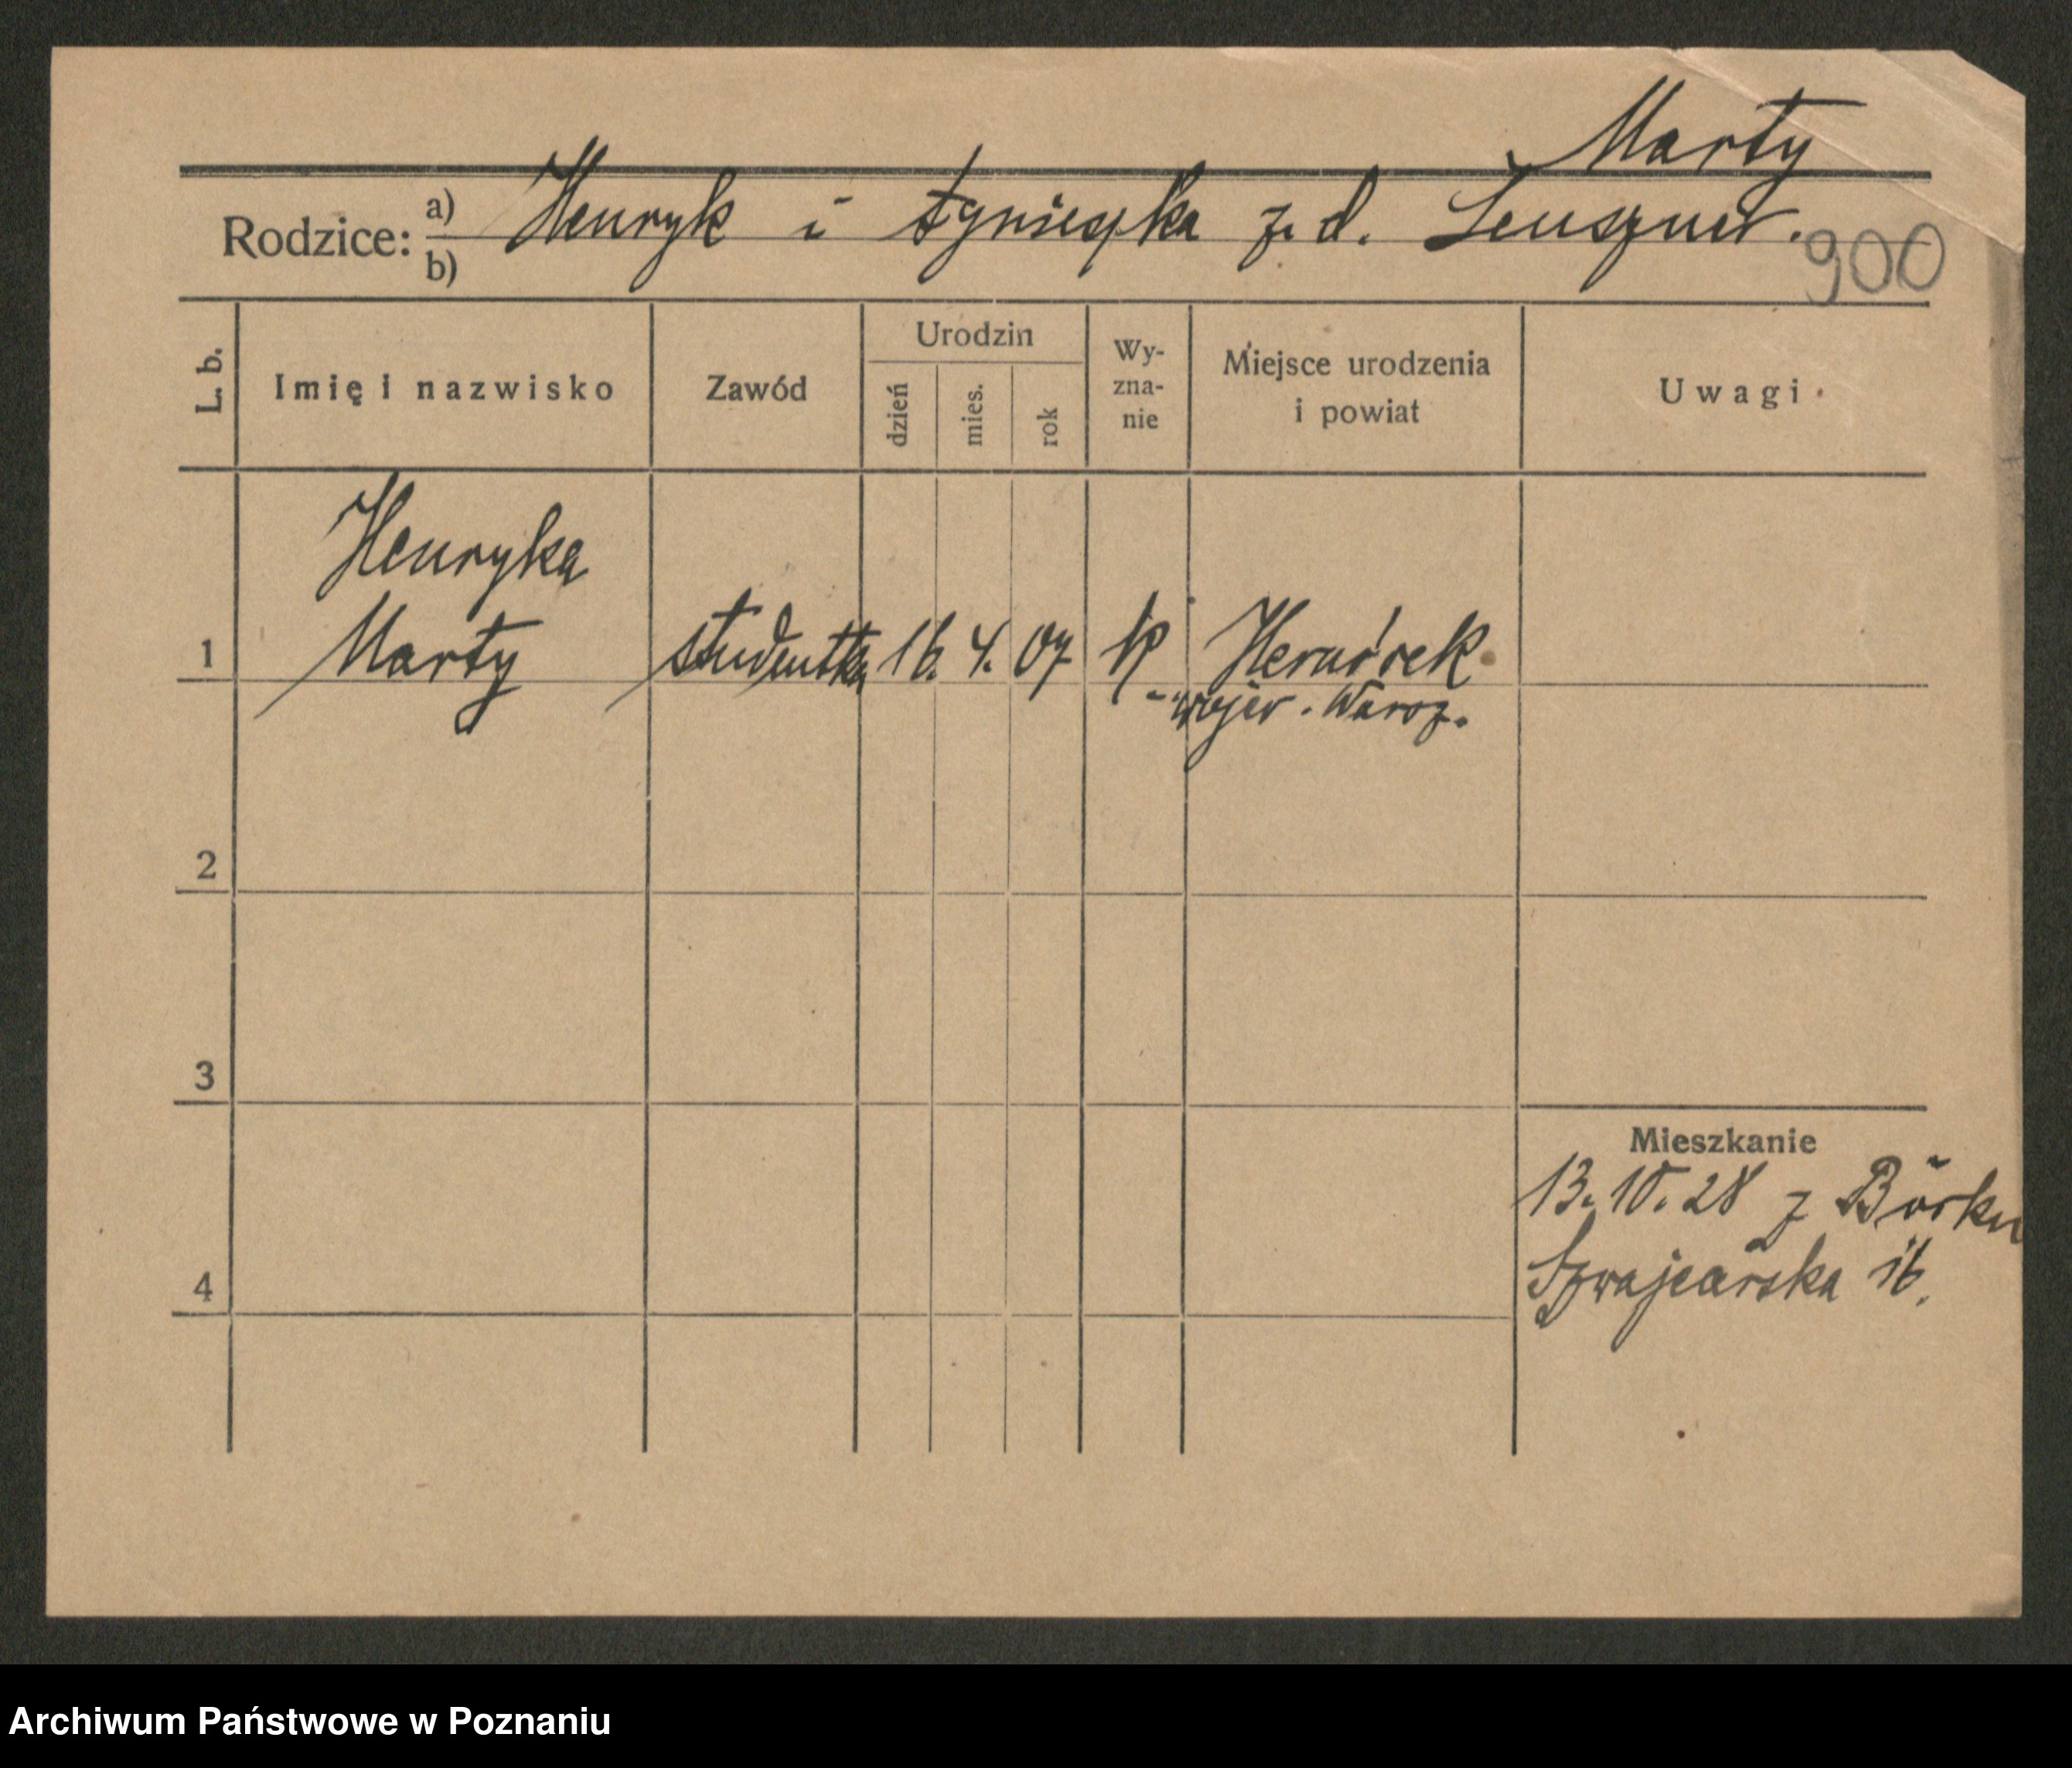 Marty
Rodzice: a) b) Henryk i Agnieszka z. d. Leuszner.
900
L. b. Imię i nazwisko Zawód Urodzin dzień mies. rok Wy-zna-nie Miejsce urodzenia i powiat Uwagi
Henryka
1 Marty studentka 16. 4. 07 k
wojew. Warsz.
2
3
Mieszkanie
13. 10. 28 z Borku
4 Szwajcarska 16.
Archiwum Państwowe w Poznaniu